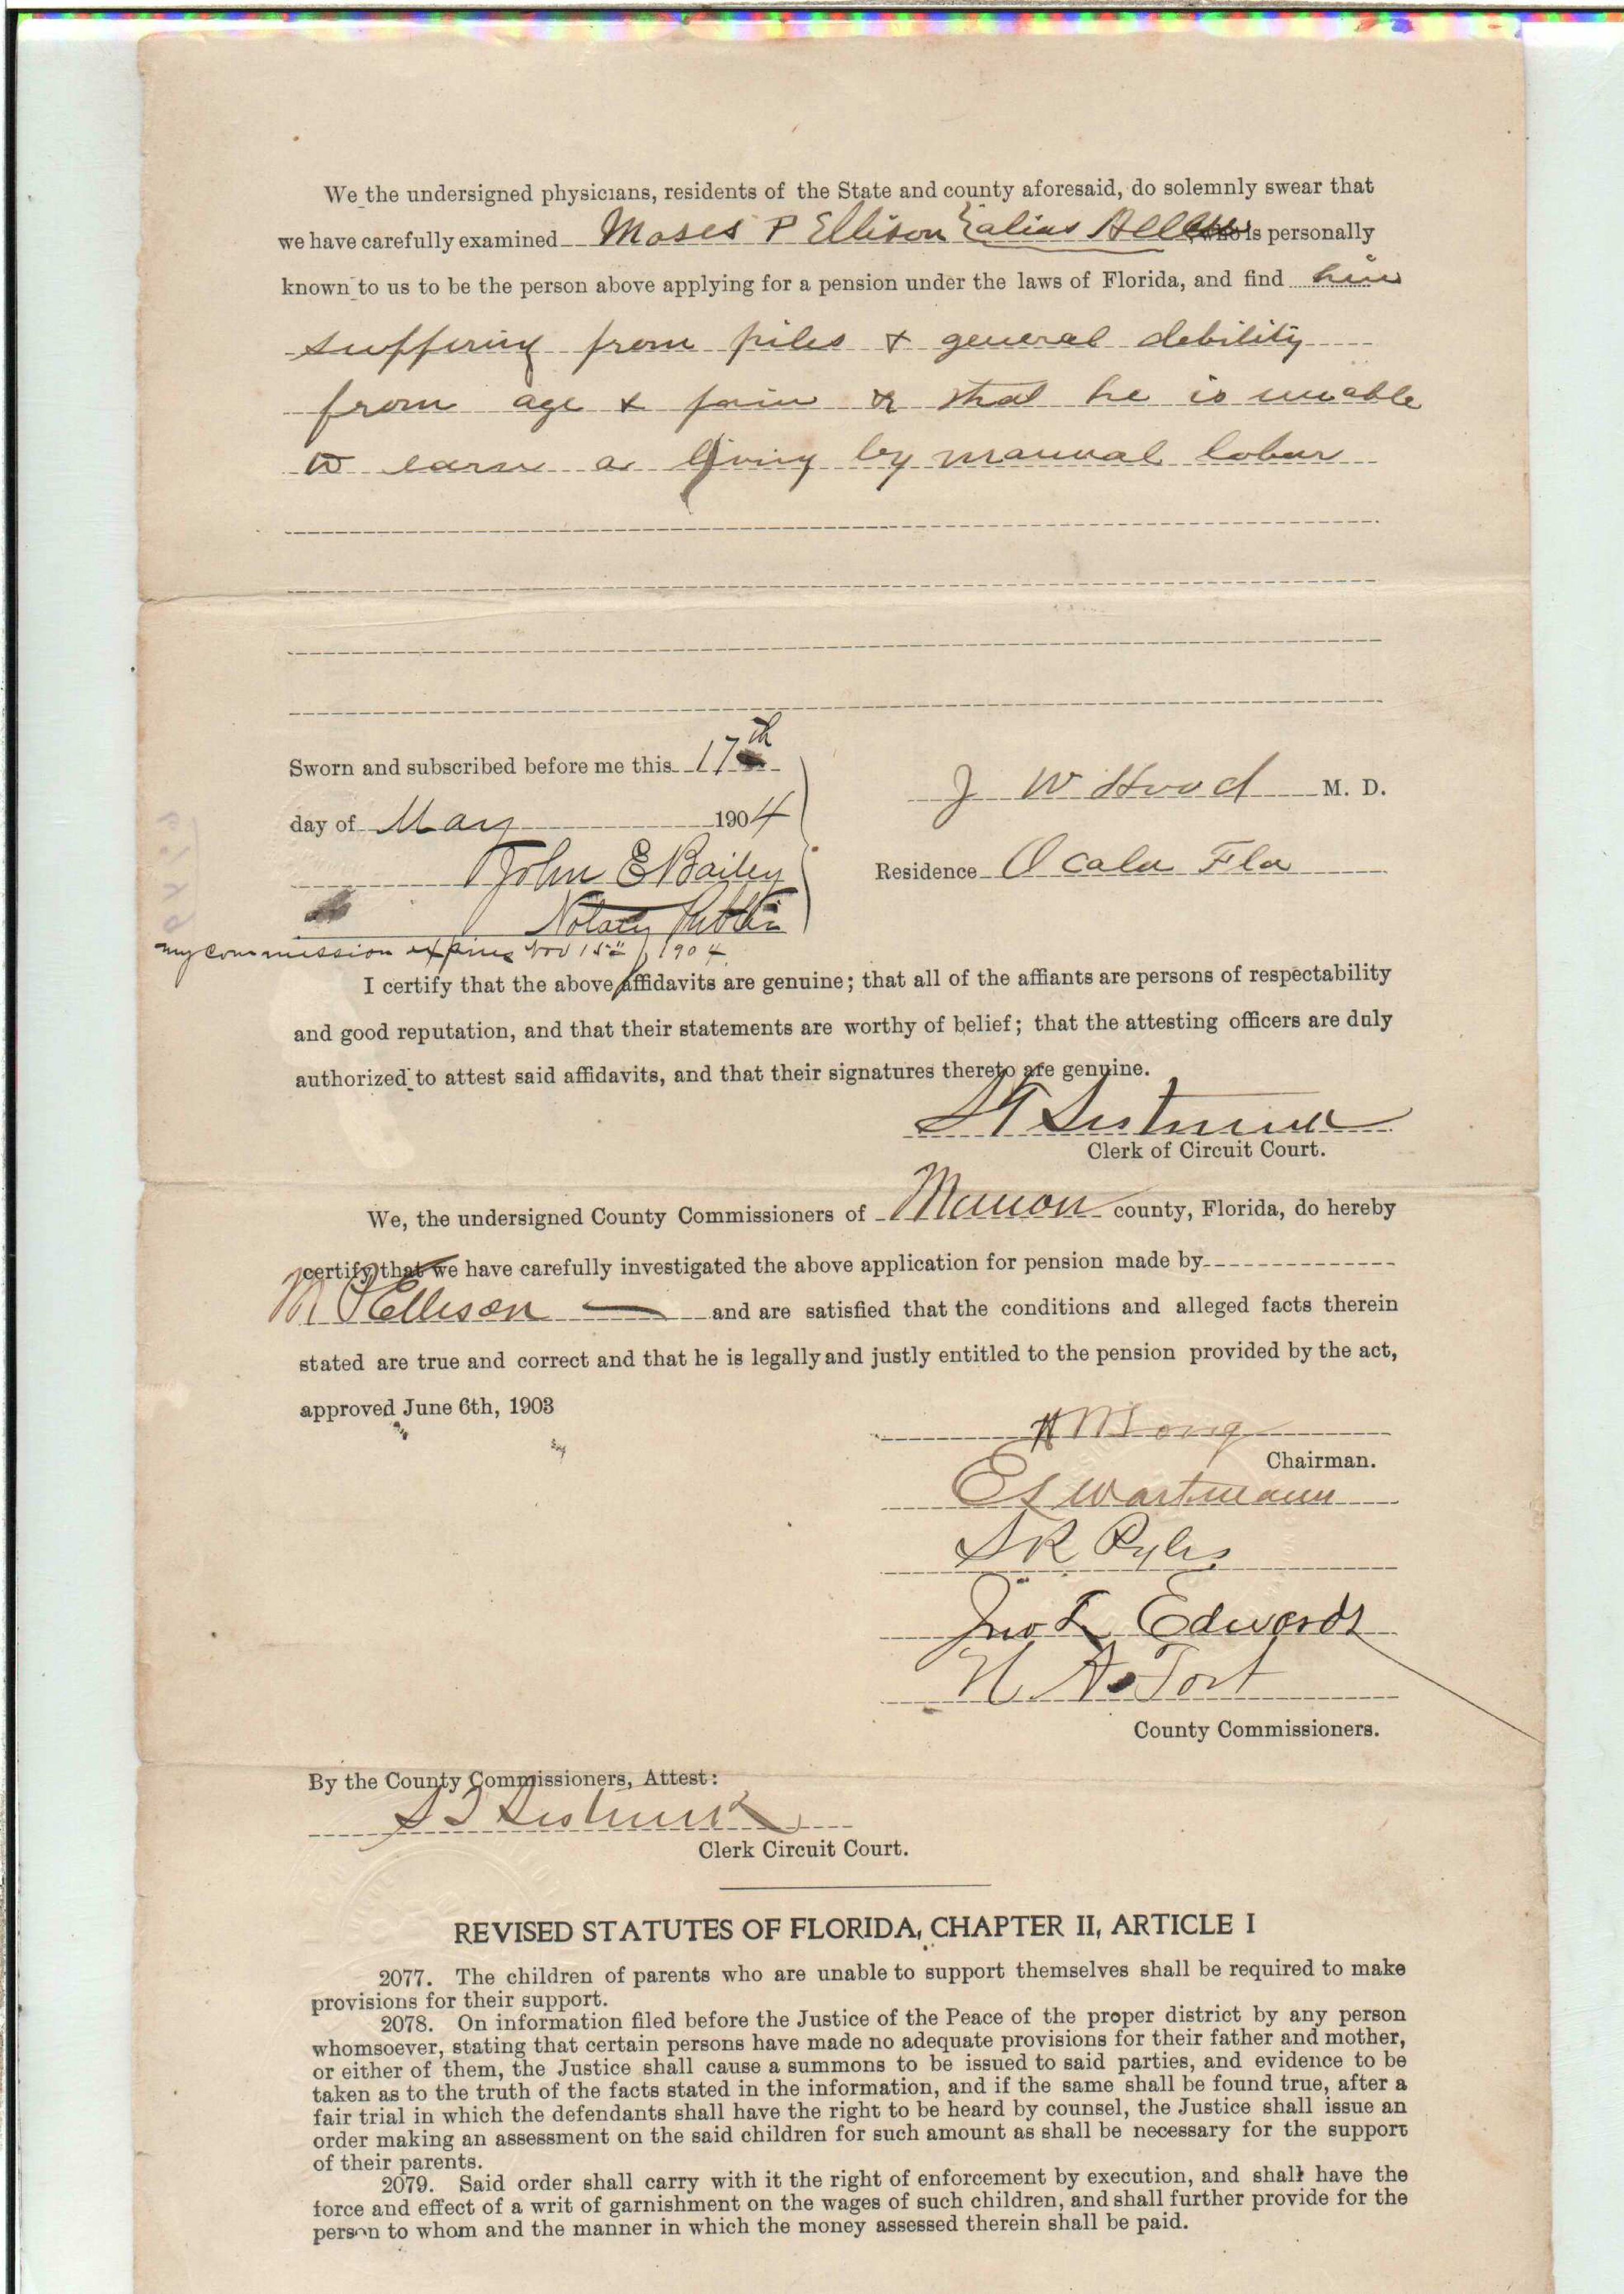 We the undersigned physicians, residents of the State and county aforesaid, do solemnly swear that
we have carefully examined Moses P Ellison alias who is personally
known to us to be the person above applying for a pension under the laws of Florida, and find him
suffering from piles & general debility
from age & pain & that he is unable
to earn a living by manual labor
Sworn and subscribed before me this 17th
day of May 1904
J W Hood M. D.
John E Bailey
Residence Ocala Fla
Notary Public
my commission expires Nov 15th 1904
I certify that the above affidavits are genuine; that all of the affiants are persons of respectability
and good reputation, and that their statements are worthy of belief; that the attesting officers are duly
authorized to attest said affidavits, and that their signatures thereto are genuine.
S T Sistrunk
Clerk of Circuit Court.
We, the undersigned County Commissioners of Marion county, Florida, do hereby
certify that we have carefully investigated the above application for pension made by
M P Ellison and are satisfied that the conditions and alleged facts therein
stated are true and correct and that he is legally and justly entitled to the pension provided by the act,
approved June 6th, 1903
Chairman.
E L Wartmann
S R Pyles
Jno L Edwards
N A Fort
County Commissioners.
By the County Commissioners, Attest:
S T Sistrunk
Clerk Circuit Court.
REVISED STATUTES OF FLORIDA, CHAPTER II, ARTICLE I
2077. The children of parents who are unable to support themselves shall be required to make
provisions for their support.
2078. On information filed before the Justice of the Peace of the proper district by any person
whomsoever, stating that certain persons have made no adequate provisions for their father and mother,
or either of them, the Justice shall cause a summons to be issued to said parties, and evidence to be
taken as to the truth of the facts stated in the information, and if the same shall be found true, after a
fair trial in which the defendants shall have the right to be heard by counsel, the Justice shall issue an
order making an assessment on the said children for such amount as shall be necessary for the support
of their parents.
2079. Said order shall carry with it the right of enforcement by execution, and shall have the
force and effect of a writ of garnishment on the wages of such children, and shall further provide for the
person to whom and the manner in which the money assessed therein shall be paid.